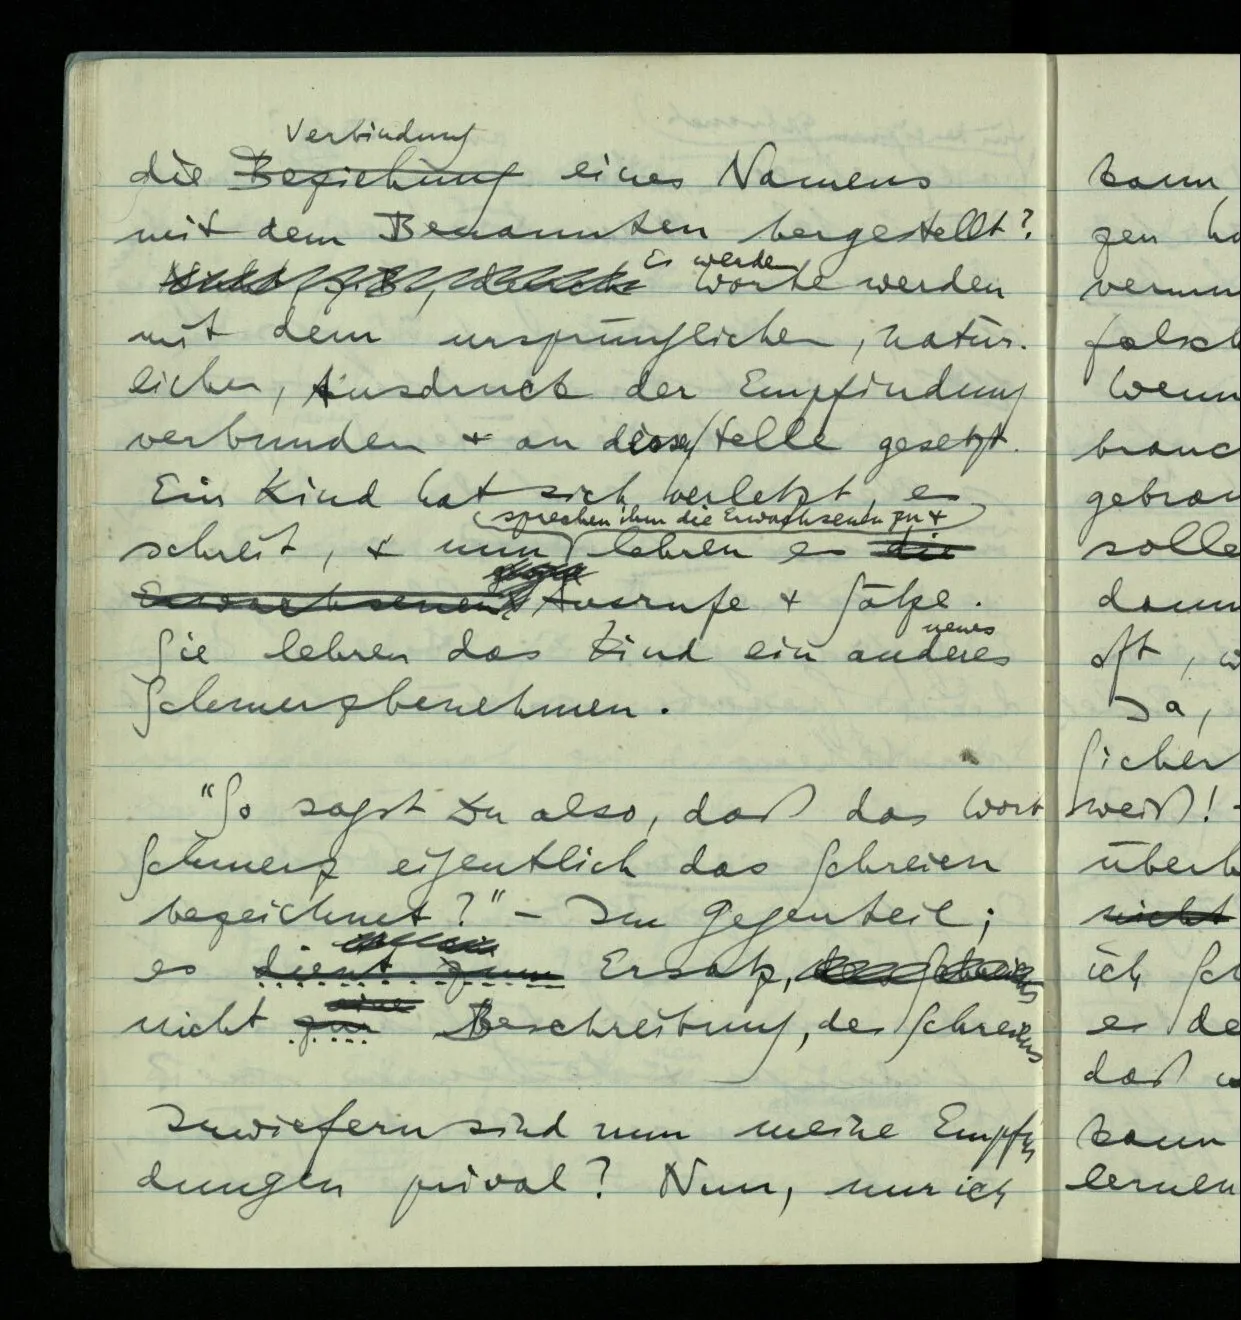 Verbindung
die Beziehung eines Namens
mit dem Benannten hergestellt?
Es werden
Worte werden
mit dem ursprünglichen, natür-
lichen, Ausdruck der Empfindung
verbunden + an dessen Stelle gesetzt.
Ein Kind hat sich verletzt, es
sprechen ihm die Erwachsenen zu +
schreit, + nun lehren es die
Erwachsenen Ausrufe + Sätze.
neues
Sie lehren das Kind ein anderes
Schmerzbenehmen.
"So sagst Du also, daß das Wort
Schmerz eigentlich das Schreien
bezeichnet?" – Im Gegenteil;
es dient zum Ersatz, des Schreiens
eine
nicht zur Beschreibung, des Schreiens
Inwiefern sind nun meine Empfin
dungen privat? Nun, nur ich
kann
gen
falsch
Wenn
solle
dann
oft,
Ja,
sicher
weiß! –
überh
nicht
ich
es
daß
kann
lernen